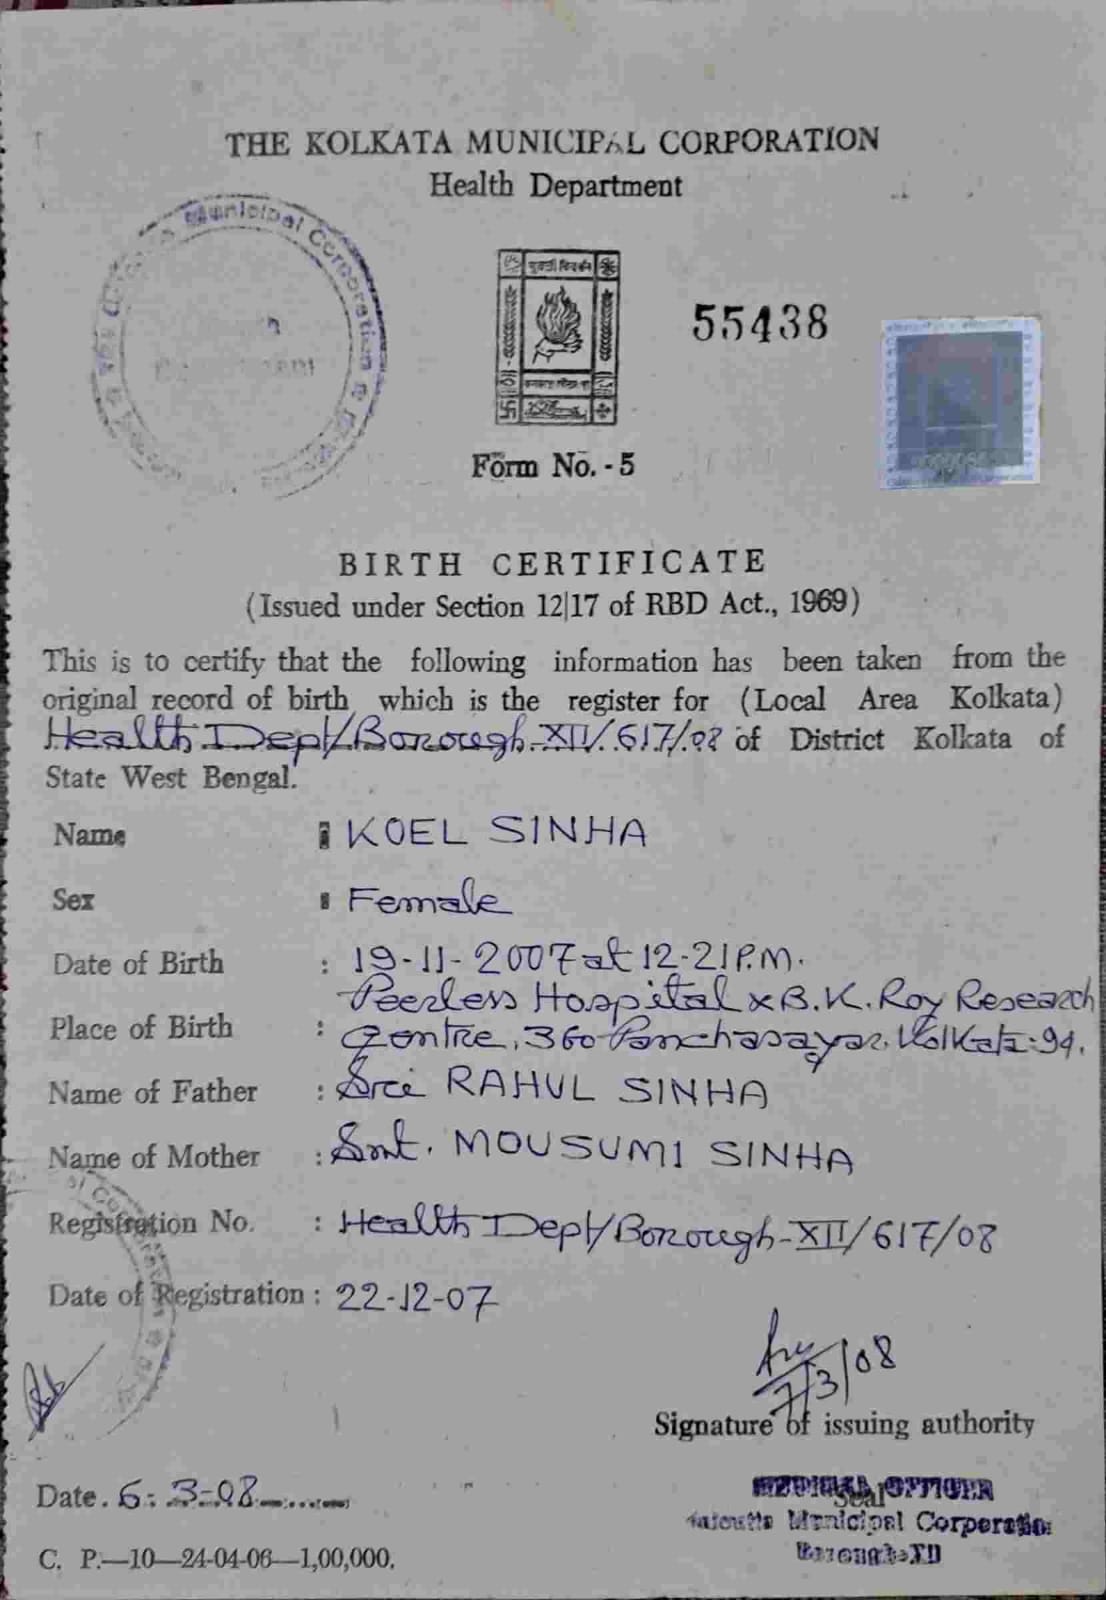 THE KOLKATA MUNICIPAL CORPORATION
Health Department
Municipal Corporation
55438
Form No. - 5
BIRTH CERTIFICATE
(Issued under Section 12|17 of RBD Act., 1969)
This is to certify that the following information has been taken from the
original record of birth which is the register for (Local Area Kolkata)
Health Dept/Borough-XII/617/08 of District Kolkata of
State West Bengal.
Name : KOEL SINHA
Sex : Female
Date of Birth : 19-11-2007 at 12-21 P.M.
Place of Birth : Peerless Hospital x B.K. Roy Research
Centre, 360 Panchasayar, Kolkata-94.
Name of Father : Sri RAHUL SINHA
Name of Mother : Smt. MOUSUMI SINHA
Registration No. : Health Dept/Borough-XII/617/08
Date of Registration : 22-12-07
7/3/08
Signature of issuing authority
Date. 6-3-08
MEDICAL OFFICER
Seal
Calcutta Municipal Corporation
Borough-XII
C. P.—10—24-04-06—1,00,000.